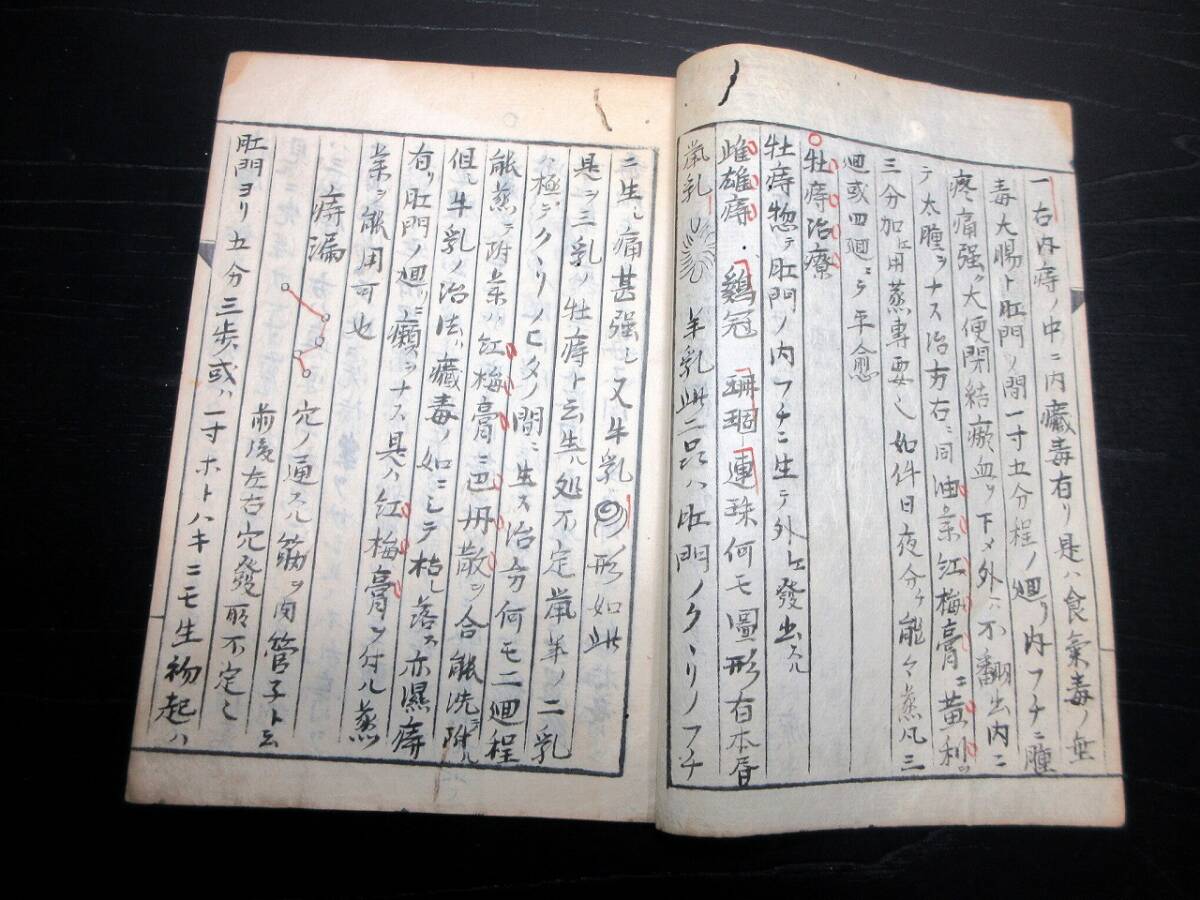 一右内痔ノ中ニ内癰毒有リ是ハ食氣毒ノ
毒大腸ト肛門ノ間一寸五分程ノ廻リ内フチニ腫
疼痛強ク大便閉結瘀血ヲ下メ外ニ不翻出内ニ
テ太腫ヲナス治方右ニ同油薬紅梅膏ニ黄利ヲ
三分加エ用蒸専要也如件日夜分テ能々蒸凡三
廻或四廻ニテ平愈
牡痔治療
牡痔惣テ肛門ノ内フチニ生テ外エ發出スル
雌雄痔・鷄冠 珊瑚 連珠何モ圖形有本
鼠乳 羊乳此二品ハ肛門ノクヽリノフチ
ニ生シ痛甚強シ又牛乳 形如此
是ヲ三乳ノ牡痔ト云生ル処不定鼠羊ノ二乳
ハ極テクヽリノヒタノ間ニ生ス治方何モ二廻程
能蒸テ附薬ハ紅梅膏ニ巴丹散ヲ合能洗テ附ル
但シ牛乳ノ治法ハ癰毒ノ如ニシテ枯シ落ス亦濕痔
有リ肛門ノ廻リニ癩ヲナス是ハ紅梅膏ヲ付ル蒸
薬ヲ能用可也
痔漏
穴ノ通スル筋ヲ肉管子ト云
前後左右穴發所不定也
肛門ヨリ五分三歩或ハ一寸ホトハキニモ生初起ハ